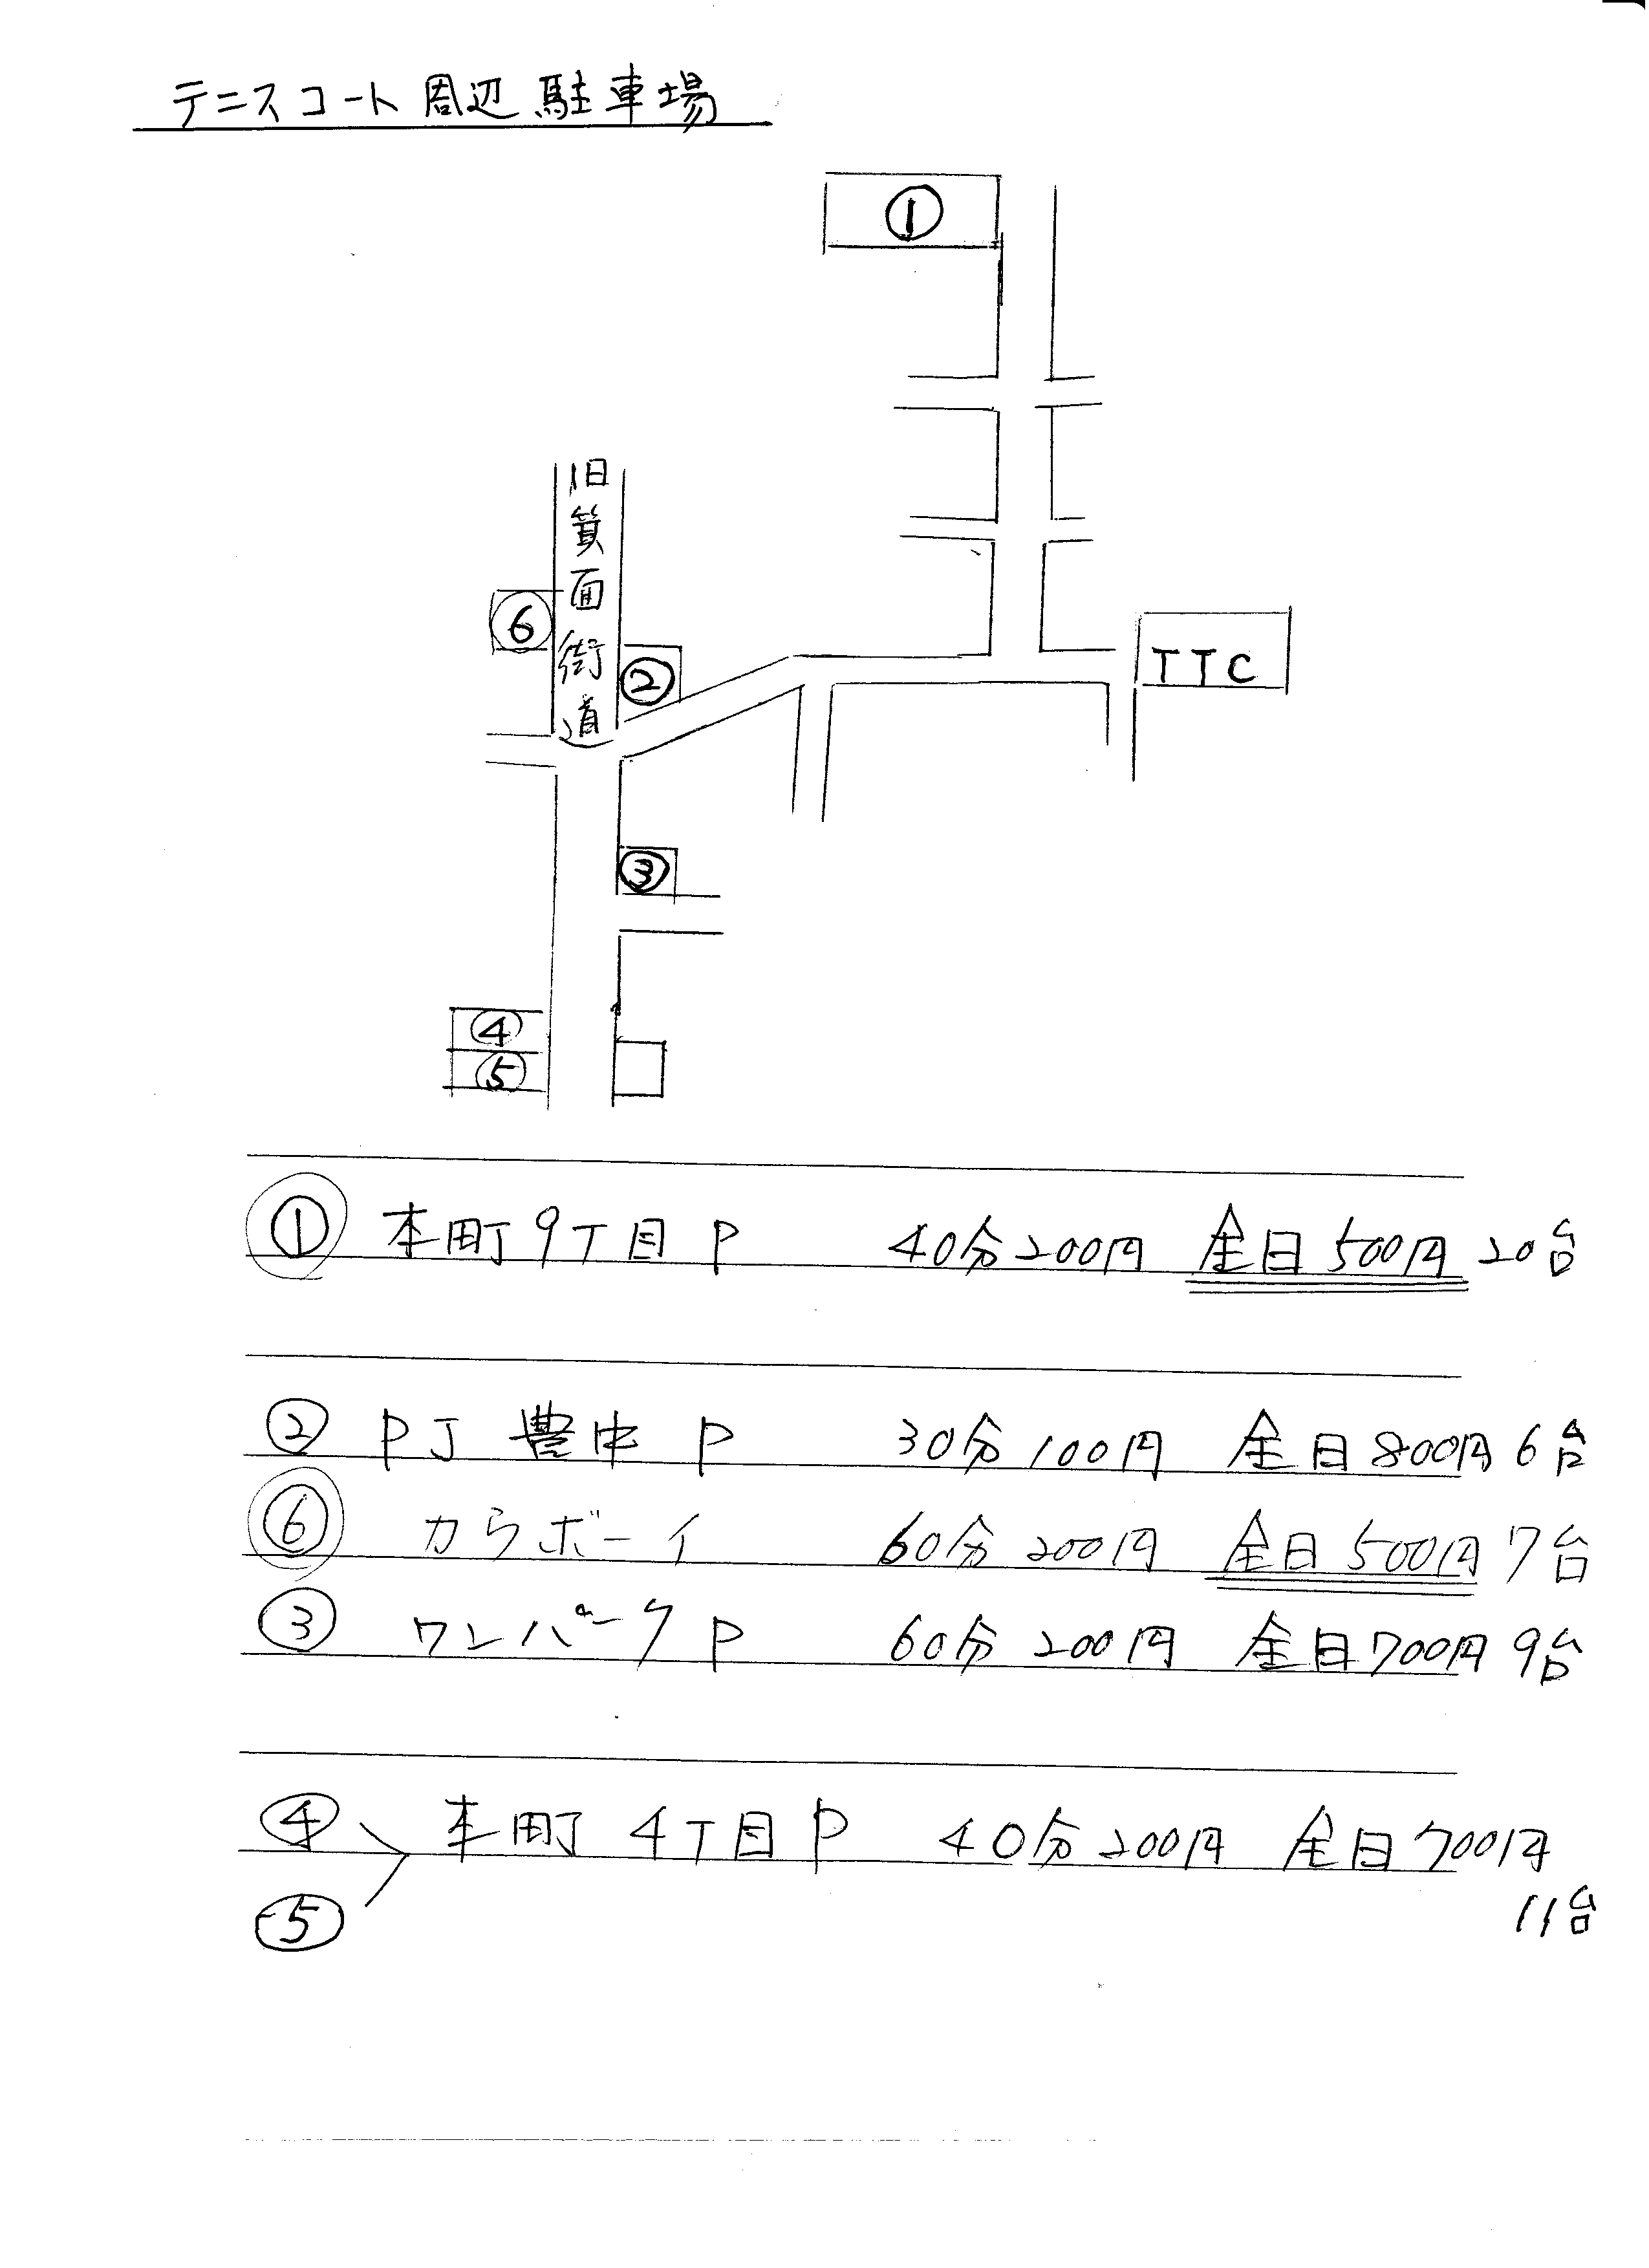 テニスコート周辺駐車場
①
旧箕面街道
⑥
②
TTC
③
④
⑤
① 本町9丁目P 40分200円 全日500円 20台
② PJ豊中P 30分100円 全日800円 6台
⑥ カラボーイ 60分200円 全日500円 7台
③ ワンパークP 60分200円 全日700円 9台
④ 本町4丁目P 40分200円 全日700円
⑤ 11台